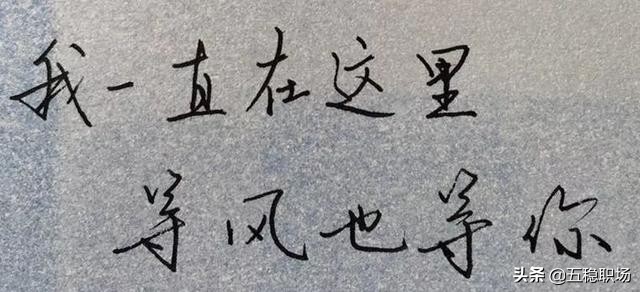 我一直在这里
等风也等你
头条 @五稳职场